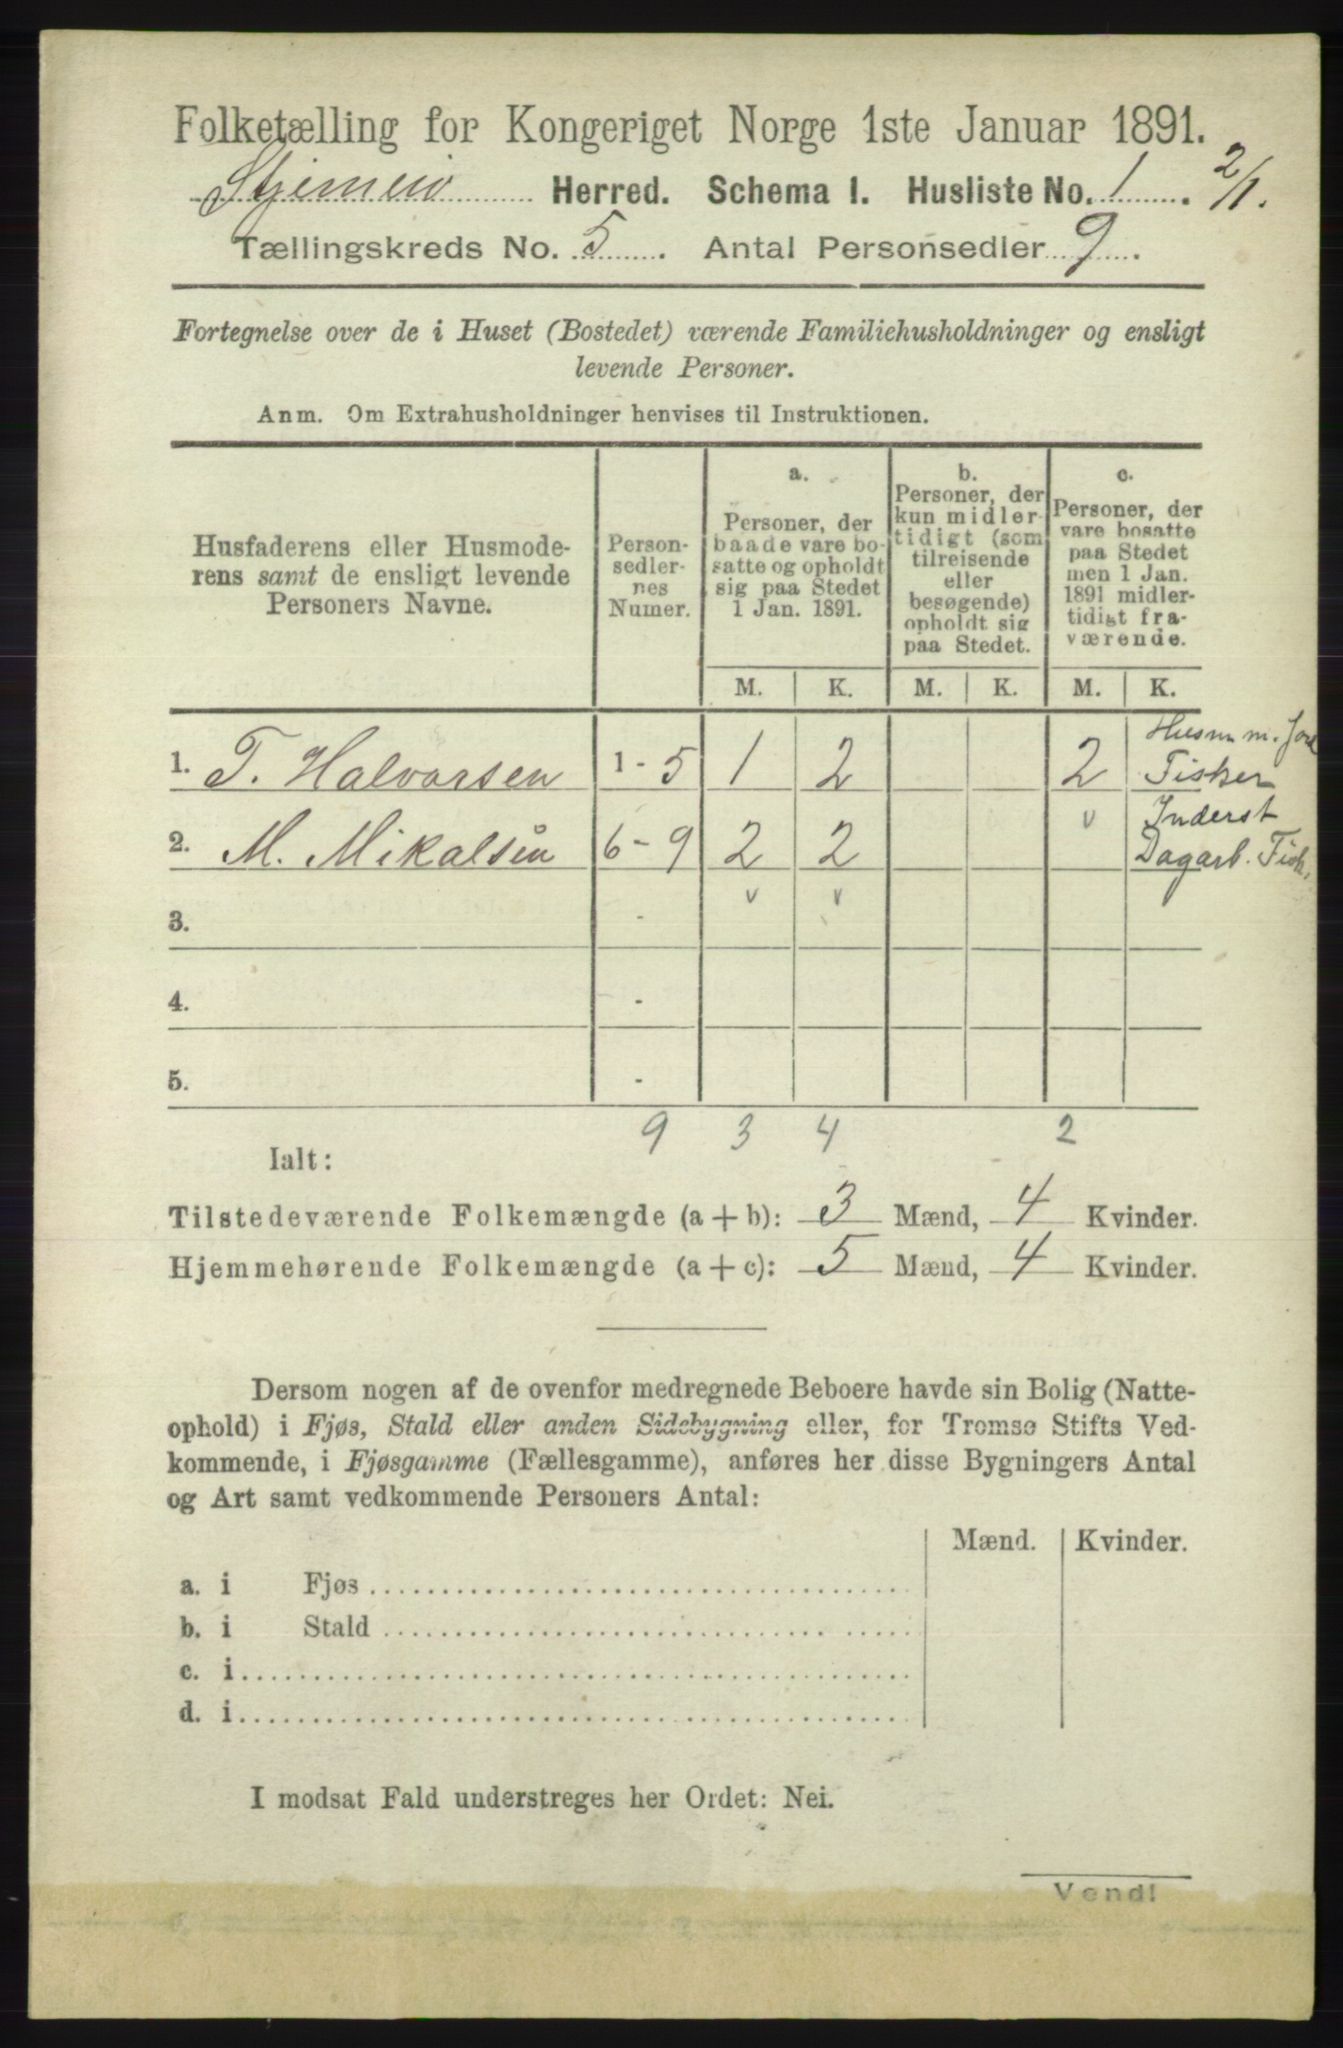 Folketælling for Kongeriget Norge 1ste Januar 1891.
Herred. Schema I. Husliste No. 1. 2/1.
Tællingskreds No. 5. Antal Personsedler 9.
Fortegnelse over de i Huset (Bostedet) værende Familiehusholdninger og ensligt
levende Personer.
Anm. Om Extrahusholdninger henvises til Instruktionen.
Husfaderens eller Husmode-
rens samt de ensligt levende
Personers Navne.
Person-
sedler-
nes
Numer.
a.
Personer, der
baade vare bo-
satte og opholdt
sig paa Stedet
1 Jan. 1891.
b.
Personer, der
kun midler-
tidigt (som
tilreisende
eller
besøgende)
opholdt sig
paa Stedet.
c.
Personer, der
vare bosatte
paa Stedet
men 1 Jan.
1891 midler-
tidigt fra-
værende.
M. K. M. K. M. K.
1. T. Halvorsen 1 - 5 1 2 2 Husm m. Jord
Fisker
2. M. Mikalsen 6 - 9 2 2 v Inderst
Dagarb. Fisk.
v v
3. -
4. -
5. -
9 3 4 2
Ialt:
Tilstedeværende Folkemængde (a + b): 3 Mænd, 4 Kvinder.
Hjemmehørende Folkemængde (a + c): 5 Mænd, 4 Kvinder.
Dersom nogen af de ovenfor medregnede Beboere havde sin Bolig (Natte-
ophold) i Fjøs, Stald eller anden Sidebygning eller, for Tromsø Stifts Ved-
kommende, i Fjøsgamme (Fællesgamme), anføres her disse Bygningers Antal
og Art samt vedkommende Personers Antal:
Mænd. Kvinder.
a. i Fjøs
b. i Stald
c. i
d. i
I modsat Fald understreges her Ordet: Nei.
Vend!